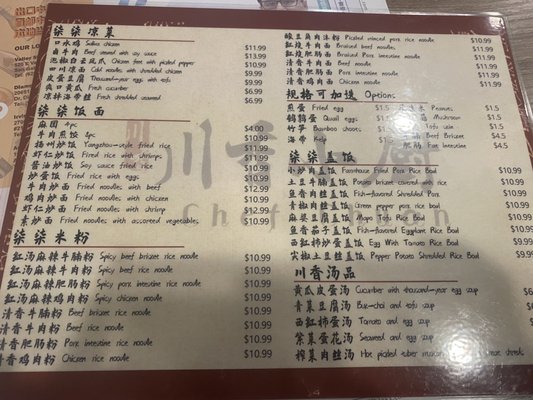 柒柒凉菜
口水鸡 Saliva chicken $11.99
卤牛肉 Beef seaned with soy sauce $11.99
泡椒白云凤爪 Chicken feet with pickled pepper $10.99
四川凉面 Cold noodles with shredded chicken $9.99
皮蛋豆腐 Thousand-year eggs with tofu $9.99
爽口黄瓜 Fresh cucumber $7.99
凉拌海带丝 Fresh shredded seaweed $6.99
柒柒饭面
麻圆 4pc $4.00
牛肉煎饺 4pc $10.99
扬州炒饭 Yangzhou-style fried rice $10.99
虾仁炒饭 Fried rice with shrimps $11.99
酱油炒饭 Soy sauce fried rice $10.99
炒蛋饭 Fried rice with eggs $10.99
牛肉炒面 Fried noodles with beef $12.99
鸡肉炒面 Fried noodles with chicken $10.99
虾仁炒面 Fried noodles with shrimp $12.99
素炒面 Fried noodles with assorted vegetables $10.99
柒柒米粉
红汤麻辣牛腩粉 Spicy beef brizket rice noodle $10.99
红汤麻辣牛肉粉 Spicy beef rice noodle $10.99
红汤麻辣肥肠粉 Spicy pork intestine rice noodle $10.99
红汤麻辣鸡肉粉 Spicy chicken noodle $10.99
清香牛腩粉 Beef brizket rice noodle $10.99
清香牛肉粉 Beef rice noodle $10.99
清香肥肠粉 Pork intestine rice noodle $10.99
清香鸡肉粉 Chicken rice noodle $10.99
酸豆角肉沫粉 Pickled minced pork rice noodle $10.99
红烧牛肉面 Braised beef noodles $10.99
红烧肥肠面 Pork intestine noodle $10.99
清香牛肉面 Beef noodle $10.99
清香肥肠面 Pork intestine noodle $10.99
清香鸡肉面 Chicken noodle $10.99
规格可加选 Options
煎蛋 Fried egg $1.5 Peanuts $1.5
鹌鹑蛋 Quail eggs $1.5 Mushroom $1.5
竹笋 Bamboo shoots $1.5 Tofu skin $1.5
海带 Kelp $1.5 Beef Brizket $4.5
肥肠 Pork Intestine $4.5
柒柒盖饭
小炒肉盖饭 Farmhouse Fried Pork Rice Bowl $10.99
土豆牛腩盖饭 Potato brizket covered with rice $10.99
鱼香肉丝盖饭 Fish-flavored Shredded Pork $10.99
青椒肉丝盖饭 Green pepper pork rice bowl $10.99
麻婆豆腐盖饭 Mapo Tofu Rice Bowl $10.99
鱼香茄子盖饭 Fish-flavored Eggplant Rice Bowl $10.99
西红柿炒蛋盖饭 Egg With Tomato Rice Bowl $9.99
尖椒土豆丝盖饭 Pepper Potato Shredded Rice Bowl $9.99
川香汤品
黄瓜皮蛋汤 Cucumber with thousand-year egg soup
青菜豆腐汤 Buc-choi and tofu soup
西红柿蛋汤 Tomato and egg soup
紫菜蛋花汤 Seaweed and egg soup
榨菜肉丝汤 Hot pickled tuber
川香厨